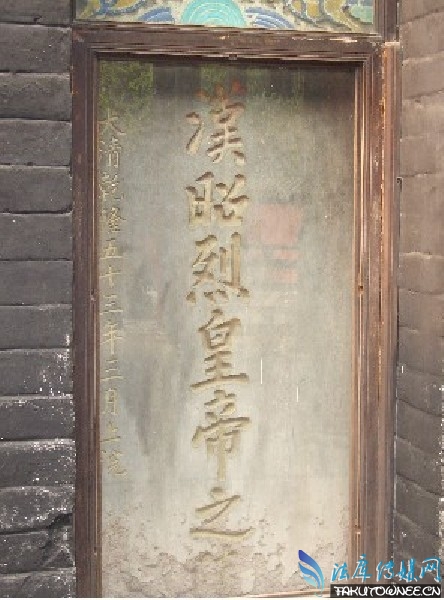 漢昭烈皇帝之
大清乾隆五十三年三月上浣
法库传媒网
TAKUTOWNEE.CN